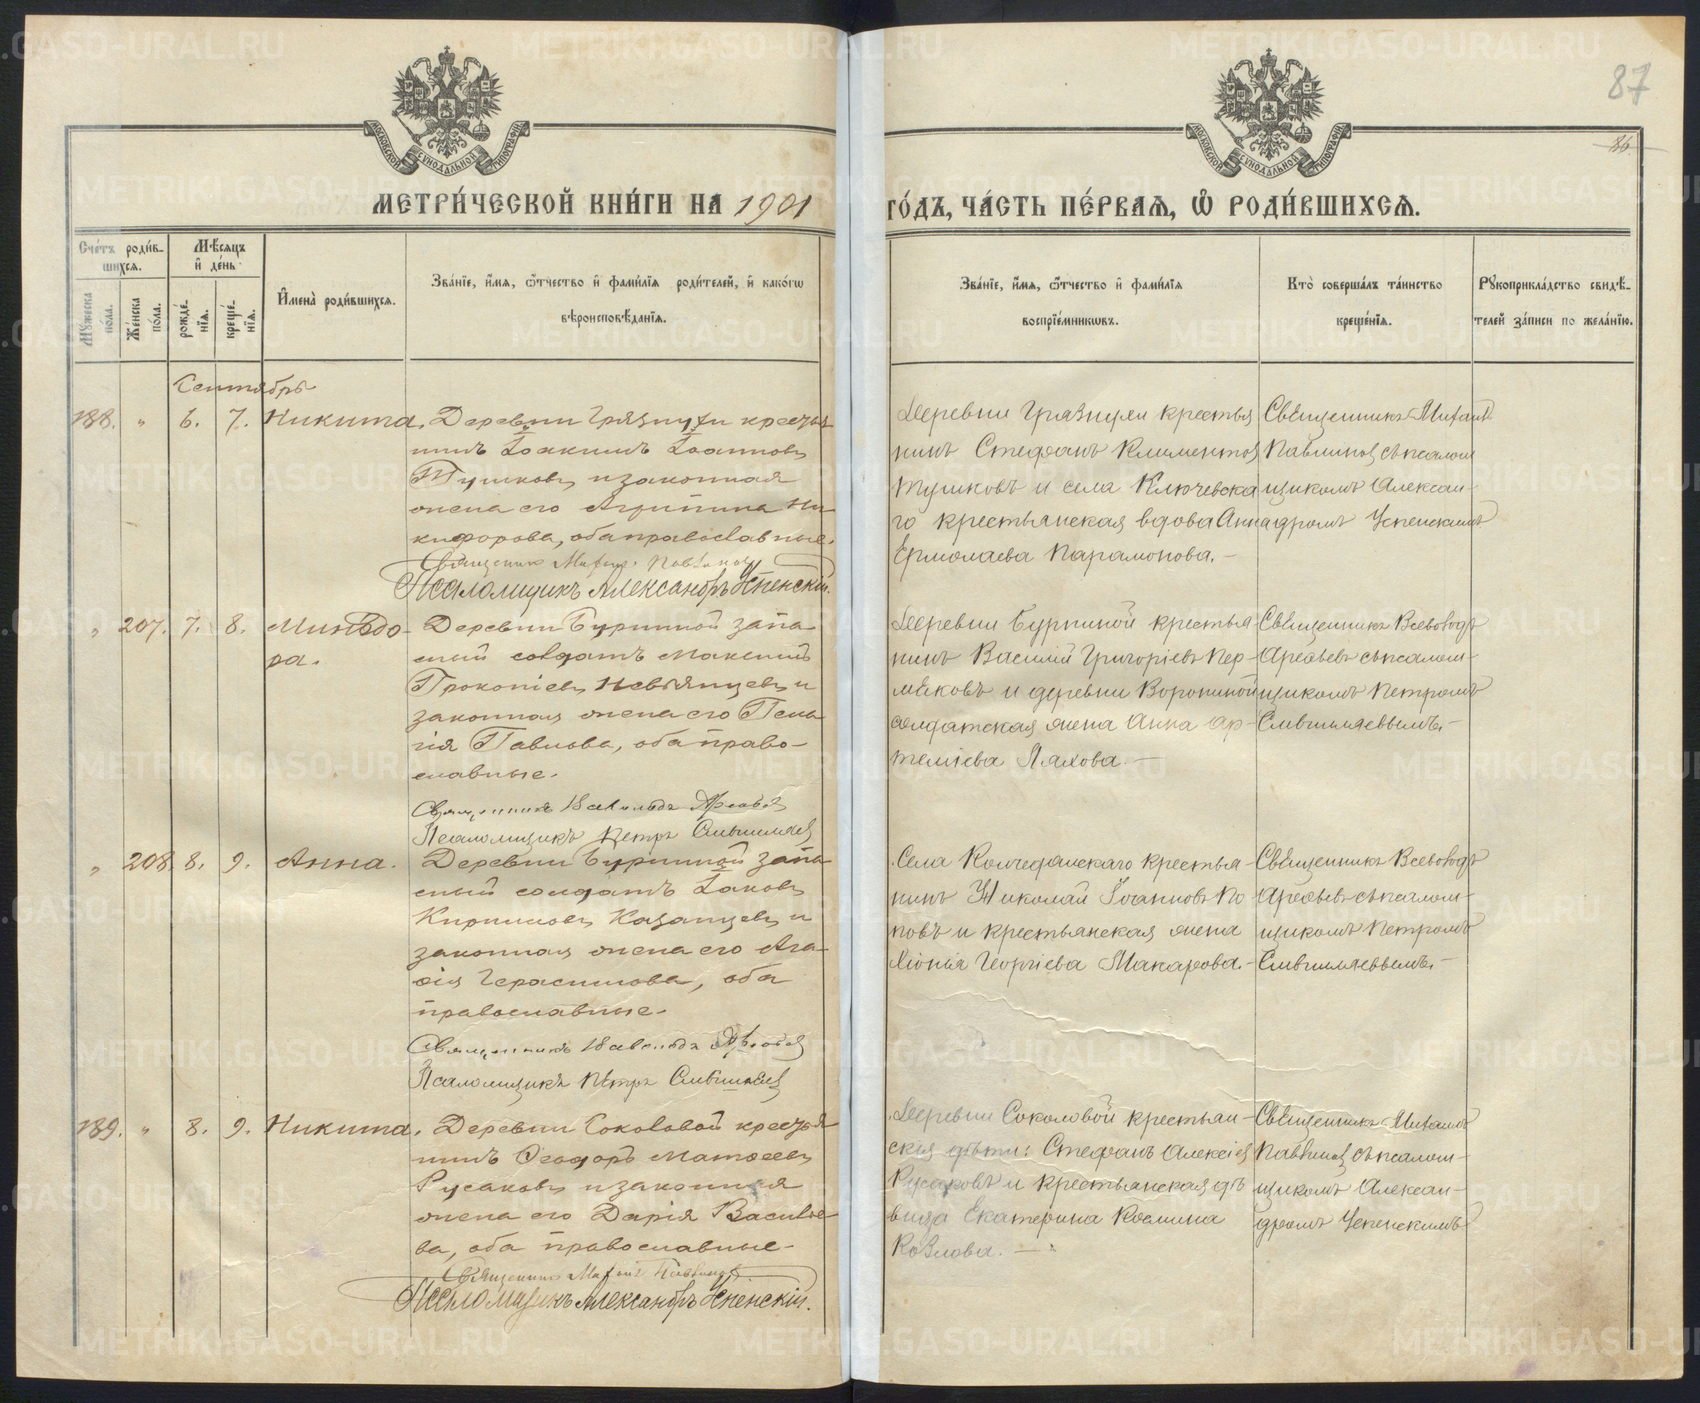 87
86.
МЕТРИ́ЧЕСКОЙ КНИ́ГИ НА 1901
ГО́ДЪ, ЧА́СТЬ ПЕ́РВАЯ, Ѽ РОДИ́ВШИХСЯ.
Сче́тъ роди́в-
шихся.
Мѣ́сяцъ
и҆ де́нь
Мꙋ́жеска
по́ла.
Же́нска
по́ла.
рожде́-
нїя.
креще́-
нїя.
И҆мена̀ роди́вшихся.
Зва́нїе, и҆́мя, ѻ҆́тчество и҆ фами́лїя роди́телей, и҆ како́гѡ
вѣроисповѣ́данїя.
Зва́нїе, и҆́мя, ѻ҆́тчество и҆ фами́лїя
воспрїе́мникѡвъ.
Кто̀ соверша́лъ та́инство
креще́нїя.
Рꙋкоприкла́дство свидѣ́-
телей за́писи по жела́нїю.
Сентябрь
188. " 6. 7. Никита.
Деревни Грязнухи кресть
нинъ Іоакимъ Іоанновъ
Тушковъ и законная
жена его Агрипина Ни
кифорова, оба православные.
Священникъ Михаилъ Павлиновъ
Псаломщикъ Александръ Успенскій.
Деревни Грязнухи крестья
нинъ Стефанъ Климентов
Тушковъ и села Ключевска
го крестьянская вдова Анна
Ермолаева Парамонова.
Священникъ Михаилъ
Павлинов съ псалом
щикомъ Алексан-
дромъ Успенскимъ
" 207. 7. 8. Минодо-
ра.
Деревни Буриной запа
сный солдатъ Максимъ
Прокопіевъ Невьянцевъ и
законная жена его Пела
гія Павлова, оба право-
славные.
Священникъ Всеволодъ Арефьев
Псаломщикъ Петръ
Деревни Буриной крестья
нинъ Василій Григоріевъ Пер-
мяковъ и деревни Ворониной
солдатская жена Анна Ар-
темiева Ляхова.
Священникъ Всеволодъ
Арефьевъ съ псалом-
щикомъ Петромъ
" 208. 8. 9. Анна.
Деревни Буриной запа
сный солдатъ Іаковъ
Кирилловъ Казанцевъ и
законная жена его Ага-
фія Герасимова, оба
православные.
Священникъ Всеволодъ Арефьев
Псаломщикъ Петръ
Села Колчеданскаго крестья-
нинъ Николай Іоанновъ По
повъ и крестьянская жена
Хіонія Георгіева Макарова.
Священникъ Всеволодъ
Арефьевъ съ псалом-
щикомъ Петромъ
189. " 8. 9. Никита.
Деревни Соколовой крестья
нинъ Ѳеодоръ Матѳеевъ
Русаковъ и законная
жена его Дарія Василье
ва, оба православные.
Священникъ Михаилъ Павлиновъ
Псаломщикъ Александръ Успенскій.
Деревни Соколовой крестьян-
скія дѣти: Стефанъ Алексіев
Русаковъ и крестьянская дѣ
вица Екатерина Космина
Козлова.
Священникъ Михаилъ
Павлинов съ псалом-
щикомъ Алексан-
дромъ Успенскимъ